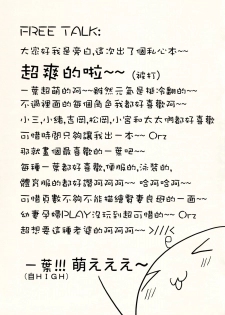 FREE TALK:
大家好我是旁白,這次出了個私心本~~
超爽的啦~~ (被打)
一葉超萌的阿~~雖然元氣是挺冷翻的~
不過裡面的每個角色我都好喜歡阿~~
小三,小緒,吉岡,松岡,小宮和太太們都好喜歡
可惜時間只夠讓我出一本~~ Orz
那就畫個最喜歡的一葉吧~~
每種一葉都好喜歡,便服的,泳裝的,
體育服的都好讚阿阿阿~~ 哈阿哈阿~~
可惜頁數不夠不能描繪賢妻良母的一面~~
幼妻孕婦PLAY沒玩到超可惜的~~ Orz
超想要這種老婆的阿阿阿~~ >///<
一葉!!! 萌えええ~
(自HIGH)